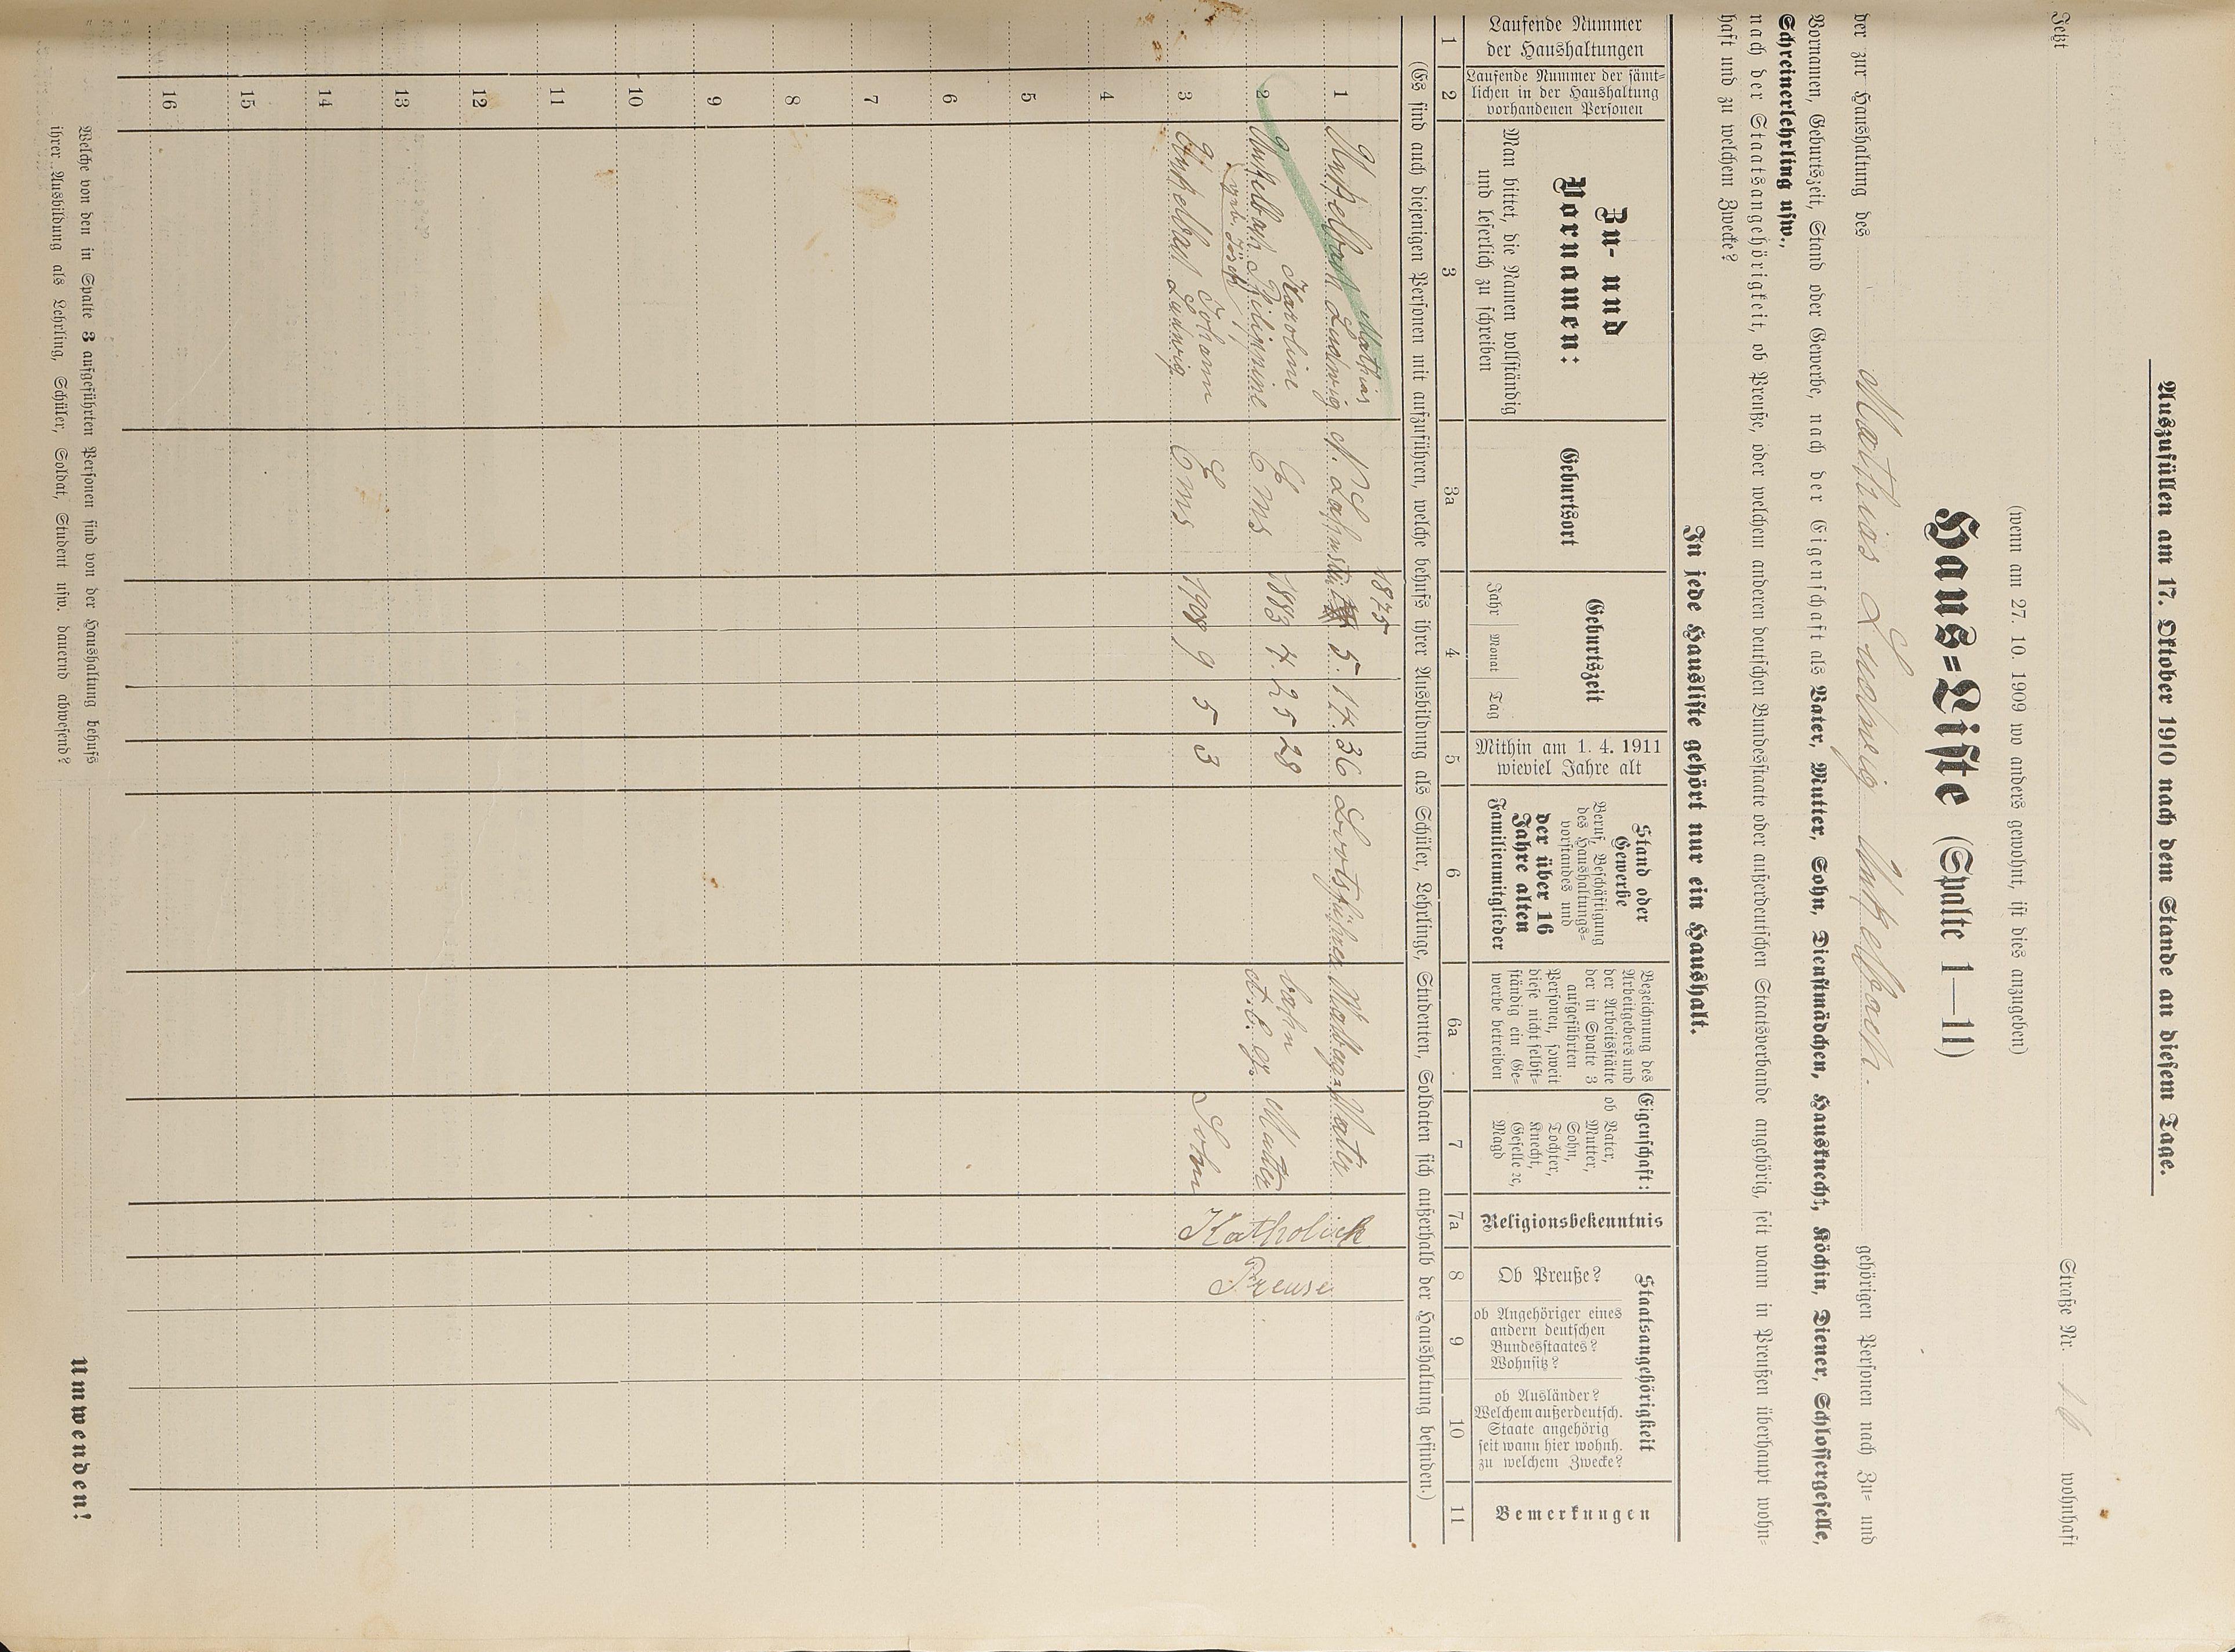 Auszufüllen am 17. Oktober 1910 nach dem Stande an diesem Tage.
Jetzt Straße Nr. 16 wohnhaft
(wenn am 27. 10. 1909 wo anders gewohnt, ist dies anzugeben)
Haus=Liste (Spalte 1—11)
der zur Haushaltung des Mathias Ludwig Unkelbach. gehörigen Personen nach Zu= und
Vornamen, Geburtszeit, Stand oder Gewerbe, nach der Eigenschaft als Vater, Mutter, Sohn, Dienstmädchen, Hausknecht, Köchin, Diener, Schlossergeselle,
Schreinerlehrling usw.,
nach der Staatsangehörigkeit, ob Preuße, oder welchem anderen deutschen Bundesstaate oder außerdeutschen Staatsverbande angehörig, seit wann in Preußen überhaupt wohn=
haft und zu welchem Zwecke?
In jede Hausliste gehört nur ein Haushalt.
Laufende Nummer
der Haushaltungen
Laufende Nummer der sämt=
lichen in der Haushaltung
vorhandenen Personen
Zu= und
Vornamen:
Man bittet, die Namen vollständig
und leserlich zu schreiben
Geburtsort
Geburtszeit
Jahr Monat Tag
Mithin am 1. 4. 1911
wieviel Jahre alt
Stand oder
Gewerbe
Beruf, Beschäftigung
des Haushaltungs=
vorstandes und
der über 16
Jahre alten
Familienmitglieder
Bezeichnung des
Arbeitgebers und
der Arbeitsstätte
der in Spalte 3
aufgeführten
Personen, soweit
diese nicht selbst=
ständig ein Ge=
werbe betreiben
Eigenschaft:
ob Vater,
Mutter,
Sohn,
Tochter,
Knecht,
Geselle ꝛc,
Magd
Religionsbekenntnis
Staatsangehörigkeit
Ob Preuße?
ob Angehöriger eines
andern deutschen
Bundesstaates?
Wohnsitz?
ob Ausländer?
Welchem außerdeutsch.
Staate angehörig
seit wann hier wohnh.
zu welchem Zwecke?
Bemerkungen
1 2 3 3a 4 5 6 6a 7 7a 8 9 10 11
(Es sind auch diejenigen Personen mit aufzuführen, welche behufs ihrer Ausbildung als Schüler, Lehrlinge, Studenten, Soldaten sich außerhalb der Haushaltung befinden.)
Mathias 1875
1 Unkelbach Ludwig N. Lahnstein 5. 17. 36 Vater Katholick
Karoline bahn
2 Unkelbach Philippine Ems 1883 7. 25 28 Mutter Preuse
Johann
3 Unkelbach Ludwig Ems 1908 9 5 3 Sohn
4
5
6
7
8
9
10
11
12
13
14
15
16
Welche von den in Spalte 3 aufgeführten Personen sind von der Haushaltung behufs
ihrer Ausbildung als Lehrling, Schüler, Soldat, Student usw. dauernd abwesend?
Umwenden!